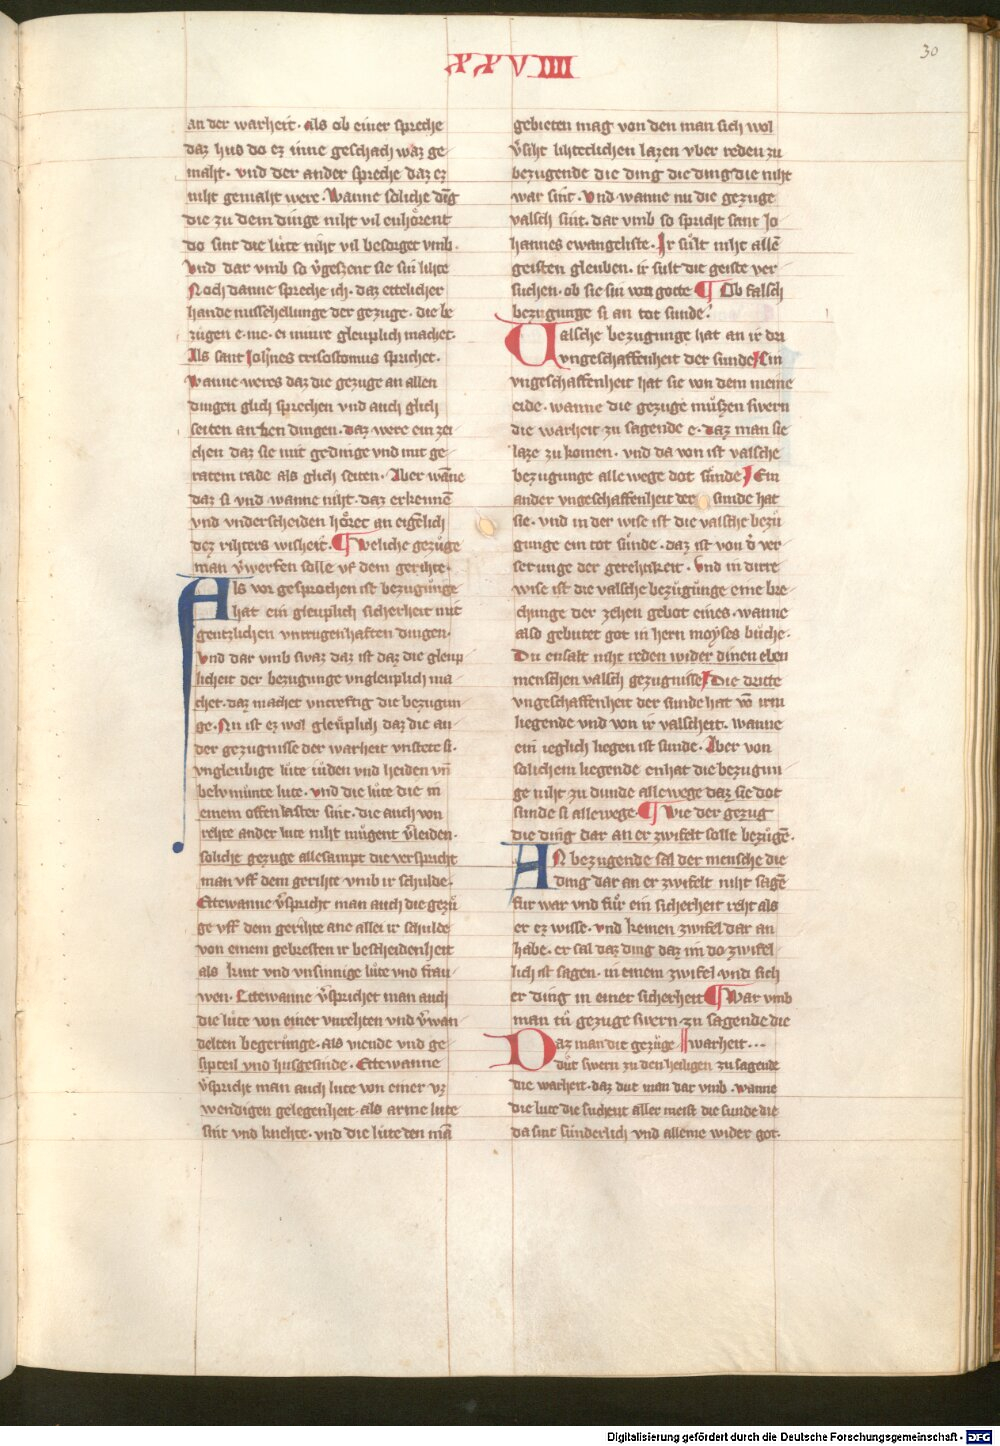 XXVIIII
30
an der warheit. als ob einer spreche
daz hus do ez inne geschach waz ge
maht. vnd der ander spreche daz ez
niht gemaht were. Wanne soliche dīg
die zu dem dinge niht vil enhoͤrent
do sint die luͤte niht vil besorget vmb.
Vnd dar vmb so v̄geszent sie sin lihte
Noch danne spreche ich. daz ettelicher
hande misschellunge der gezuge. die be
zugen e. me. ei muire gleuplich machet.
Als sant Joh̄nes crisostomus sprichet.
Wanne weres daz die gezuge an allen
dingen glich sprechen vnd auch glich
seiten an den dingen. daz were ein zei
chen daz sie mit gedinge vnd mit ge
ratem rade als glich seiten. Aber wāne
daz si vnd wanne niht. daz erkennē
vnd vnderscheiden hoͤret an eigēlich
dez rihters wisheit. ¶ Weliche gezuͤge
man v̄werfen solle vf dem gerihte.
Als vor gesprochen ist bezuguͤnge
hat ein gleuplich sicherheit mit
gentzlichen vntrugenhaften dingen.
Vnd dar vmb swaz daz ist daz die gleup
licheit der bezugunge vngleuplich ma
chet. daz machet vncreftig die bezugun
ge. Nu ist ez wol gleuͤplich daz die an
der gezugnisse der warheit vnstete si.
vngleubige luͤte iuͤden vnd heiden vn̄
belymuͤnte lute. vnd die luͤte die in
einem offen laster sint. die auch von
rehte ander lute niht muͤgent v̄leiden.
soliche gezuge allesampt die verspricht
man vff dem gerihte vmb ir schulde.
Ettewanne v̄spricht man auch die gezuͤ
ge vff dem gerihte ane allei ir schulde
von einem gebresten ir bescheidenheit
als kint vnd vnsinnige luͤte vnd frau
wen. Ettewanne v̄sprichet man auch
die luͤte von einer vnrehten vnd v̄wan
delten begerunge. als viende vnd ge
sipteil vnd husgesinde. Ettewanne
v̄spricht man auch lute von einer vz
wendigen gelegenheit. als arme lute
sint vnd knehte. vnd die luͤte den mā
gebieten mag von den man sich wol
v̄siht lihteclichen lazen vber reden zu
bezugende die ding die ding die niht
war sint. Vnd wanne nu die gezuge
valsch sint. dar vmb so spricht sant Jo
hannes ewangeliste. Ir suͤlt niht allē
geisten gleuben. ir sult die geiste ver
suchen. ob sie sin von gotte ¶ Ob falsch
bezugunge si an tot sunde?
Valsche bezugunge hat an ir dri
vngeschaffenheit der sunde Ein
vngeschaffenheit hat sie von dem meine
eide. wanne die gezuge muͤszen swern
die warheit zu sagende e. daz man sie
laze zu komen. vnd da von ist valsche
bezugunge alle wege dot suͤnde Ein
ander vngeschaffenheit der sunde hat
sie. vnd in der wise ist die valsche bezuͤ
gunge ein tot suͤnde. daz ist von d̄ ver
serunge der gerehtikeit. Vnd in dirre
wise ist die valsche bezuͤguͤnge eine bre
chunge der zehen gebot eines. wanne
also gebutet got in hern moyses buͤche.
Du ensalt niht reden wider dinen eben
menschen valsch gezugnisse Die dritte
vngeschaffenheit der sunde hat vō irm
liegende vnd von ir valscheit. wanne
ein ieglich liegen ist sunde. Aber von
solichem liegende enhat die bezugun
ge niht zu dunde allewege daz sie dot
sunde si allewege. ¶ Wie der gezug
die ding dar an er zwifelt solle bezuͤgē.
An bezugende sal der mensche die
ding dar an er zwifelt niht sagē
fur war vnd fuͤr ein sicherheit reht als
er ez wisse. vnd keinen zwifel dar an
habe. er sal daz ding daz im do zwifel
lich ist sagen. in einem zwifel. vnd sich
er ding in einer sicherheit ¶ War vmb
man tuͤ gezuge swern. zu sagende die
Daz man die gezuͤge warheit...
duͤt swern zu den heiligen zu sagende
die warheit. daz dut man dar vmb. wanne
die lute die suchent aller meist die sunde die
da sint sunderlich vnd alleine wider got.
Digitalisierung gefördert durch die Deutsche Forschungsgemeinschaft - DFG